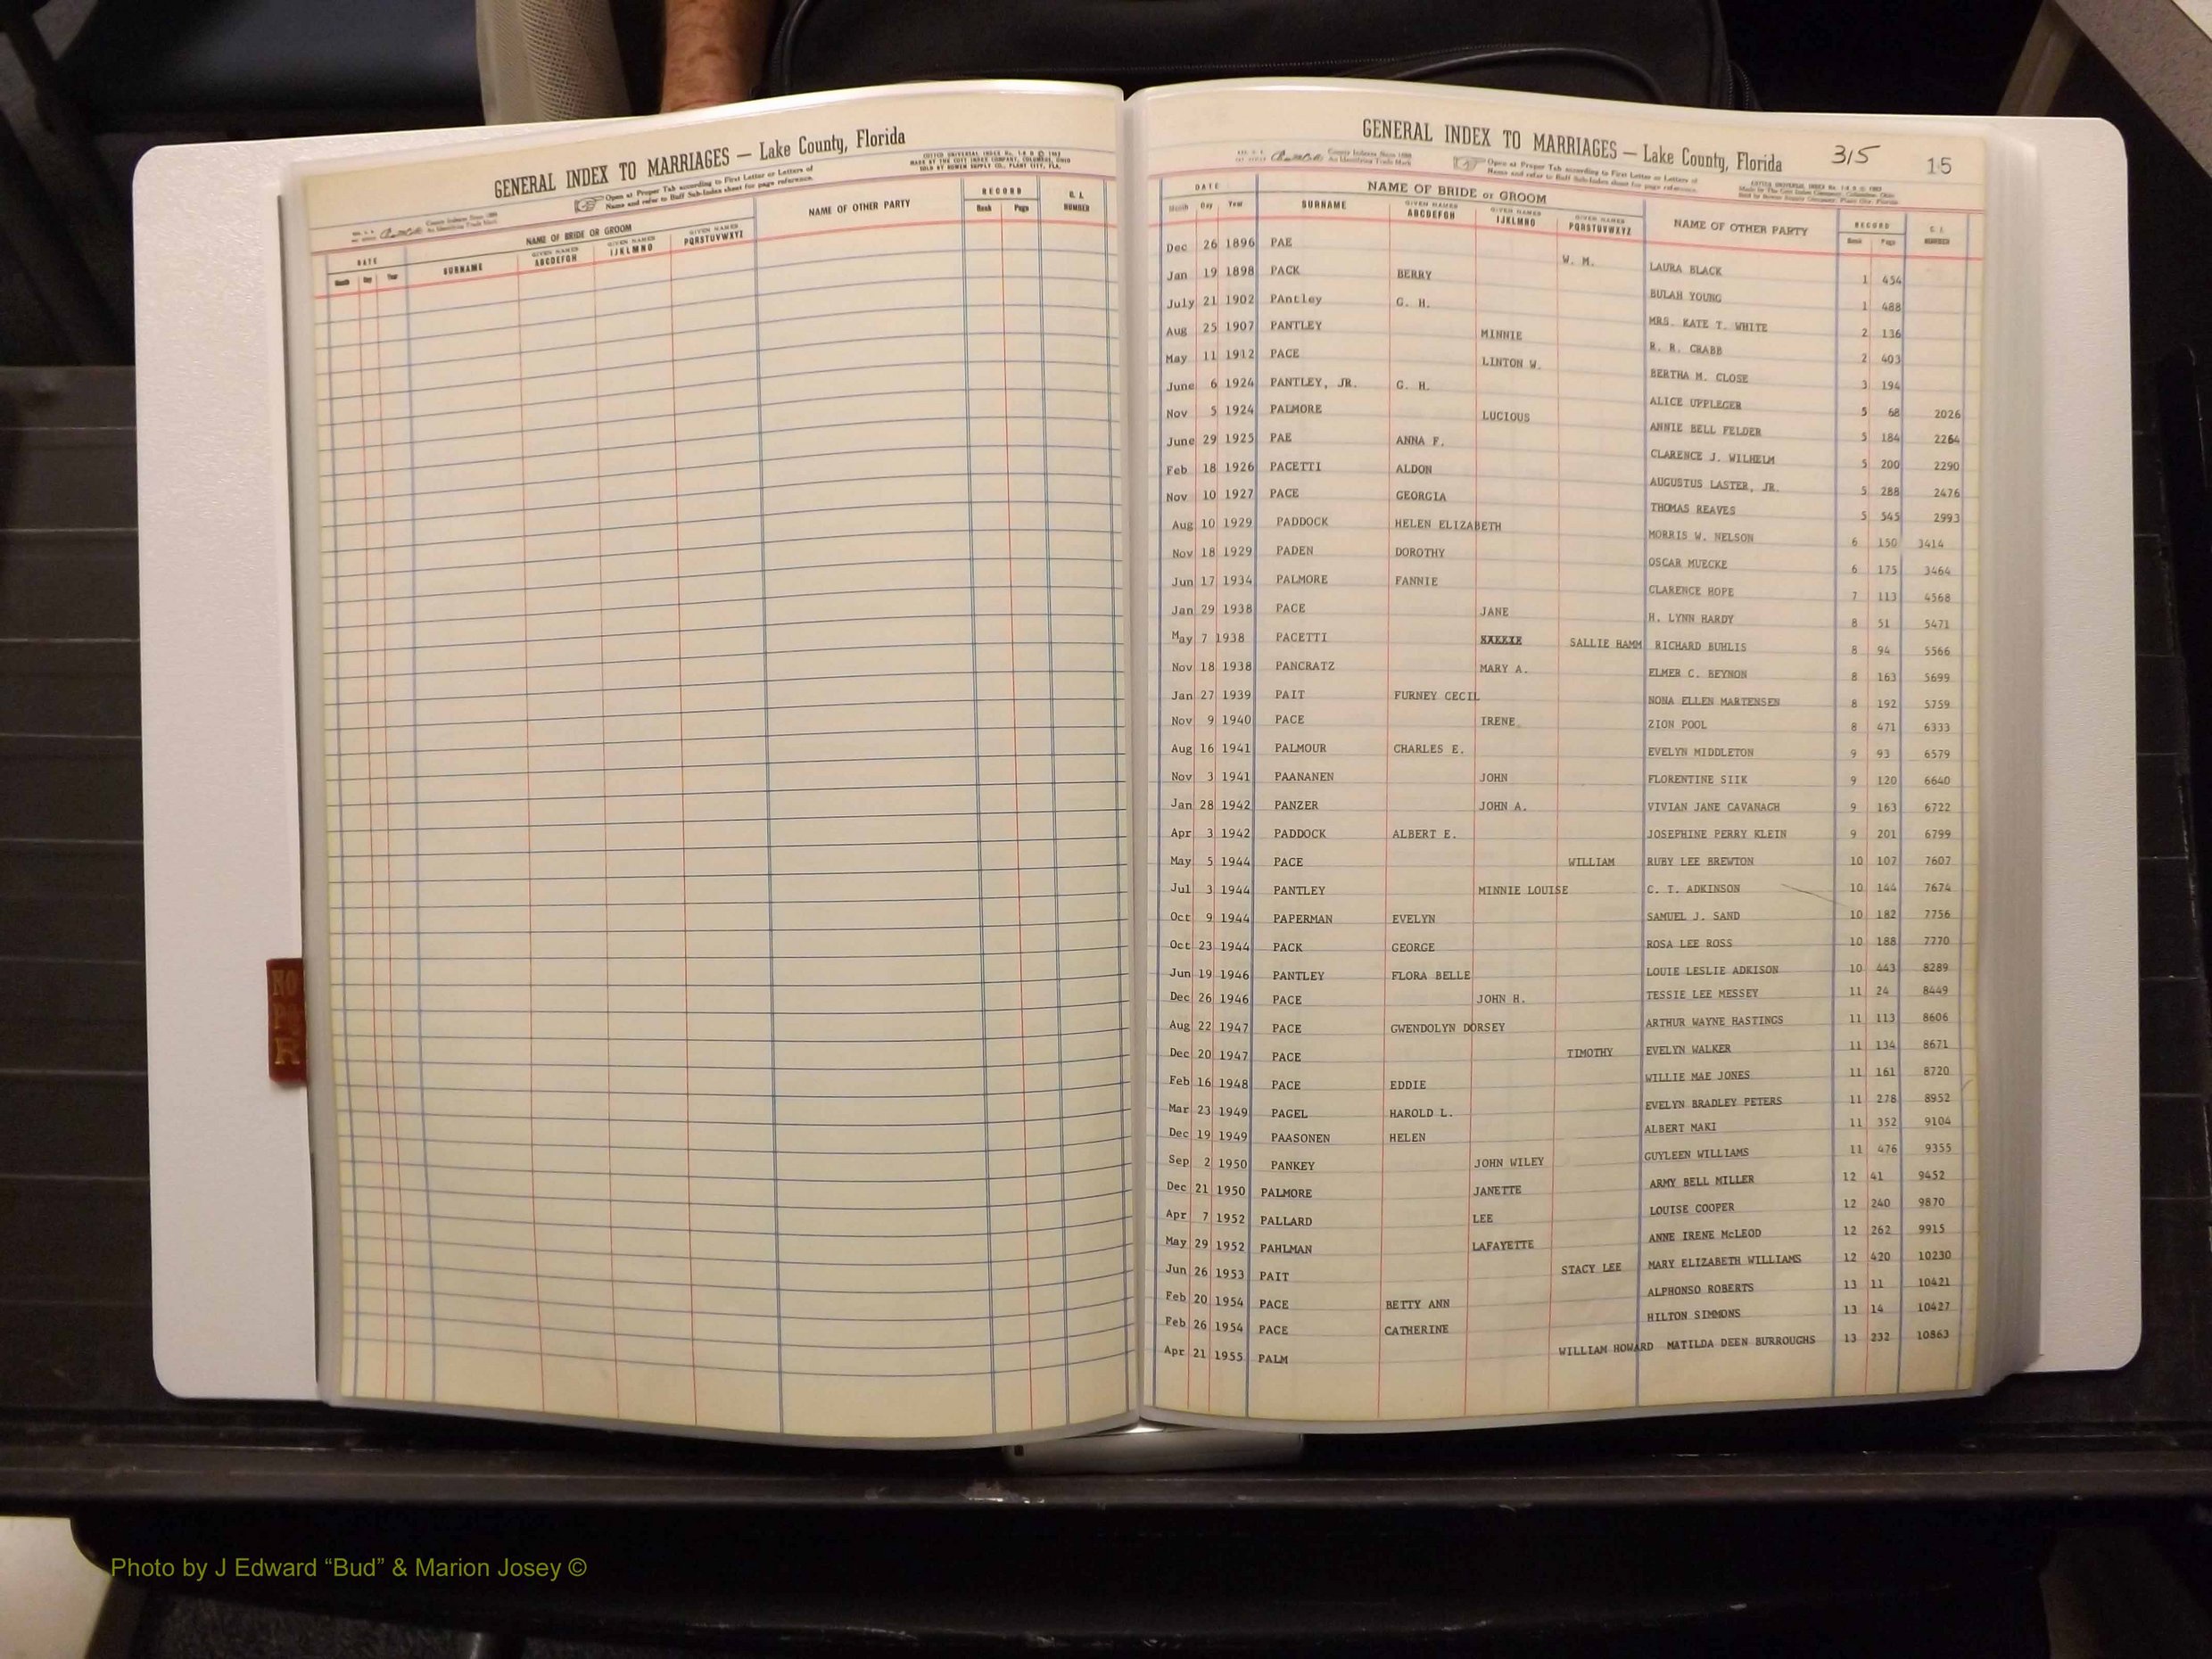 GENERAL INDEX TO MARRIAGES — Lake County, Florida
Open at Proper Tab according to First Letter or Letters of
Name and refer to Buff Sub-Index sheet for page reference.
DATE NAME OF BRIDE OR GROOM NAME OF OTHER PARTY RECORD C. I. NUMBER
Month Day Year SURNAME GIVEN NAMES ABCDEFGH GIVEN NAMES IJKLMNO GIVEN NAMES PQRSTUVWXYZ Book Page
NO
R
GENERAL INDEX TO MARRIAGES — Lake County, Florida 315 15
Open at Proper Tab according to First Letter or Letters of
Name and refer to Buff Sub-Index sheet for page reference.
DATE NAME OF BRIDE or GROOM NAME OF OTHER PARTY RECORD C. I. NUMBER
Month Day Year SURNAME GIVEN NAMES ABCDEFGH GIVEN NAMES IJKLMNO GIVEN NAMES PQRSTUVWXYZ Book Page
Dec 26 1896 PAE W. M. LAURA BLACK 1 454
Jan 19 1898 PACK BERRY BULAH YOUNG 1 488
July 21 1902 PAntley G. H. MRS. KATE T. WHITE 2 136
Aug 25 1907 PANTLEY MINNIE R. R. CRABB 2 403
May 11 1912 PACE LINTON W. BERTHA M. CLOSE 3 194
June 6 1924 PANTLEY, JR. G. H. ALICE UPPLEGER 5 68 2026
Nov 5 1924 PALMORE LUCIOUS ANNIE BELL FELDER 5 184 2264
June 29 1925 PAE ANNA F. CLARENCE J. WILHELM 5 200 2290
Feb 18 1926 PACETTI ALDON AUGUSTUS LASTER, JR. 5 288 2476
Nov 10 1927 PACE GEORGIA THOMAS REAVES 5 545 2993
Aug 10 1929 PADDOCK HELEN ELIZABETH MORRIS W. NELSON 6 150 3414
Nov 18 1929 PADEN DOROTHY OSCAR MUECKE 6 175 3464
Jun 17 1934 PALMORE FANNIE CLARENCE HOPE 7 113 4568
Jan 29 1938 PACE JANE H. LYNN HARDY 8 51 5471
May 7 1938 PACETTI SALLIE HAMM RICHARD BUHLIS 8 94 5566
Nov 18 1938 PANCRATZ MARY A. ELMER C. BEYNON 8 163 5699
Jan 27 1939 PAIT FURNEY CECIL NONA ELLEN MARTENSEN 8 192 5759
Nov 9 1940 PACE IRENE ZION POOL 8 471 6333
Aug 16 1941 PALMOUR CHARLES E. EVELYN MIDDLETON 9 93 6579
Nov 3 1941 PAANANEN JOHN FLORENTINE SIIK 9 120 6640
Jan 28 1942 PANZER JOHN A. VIVIAN JANE CAVANAGH 9 163 6722
Apr 3 1942 PADDOCK ALBERT E. JOSEPHINE PERRY KLEIN 9 201 6799
May 5 1944 PACE WILLIAM RUBY LEE BREWTON 10 107 7607
Jul 3 1944 PANTLEY MINNIE LOUISE C. T. ADKINSON 10 144 7674
Oct 9 1944 PAPERMAN EVELYN SAMUEL J. SAND 10 182 7756
Oct 23 1944 PACK GEORGE ROSA LEE ROSS 10 188 7770
Jun 19 1946 PANTLEY FLORA BELLE LOUIE LESLIE ADKISON 10 443 8289
Dec 26 1946 PACE JOHN H. TESSIE LEE MESSEY 11 24 8449
Aug 22 1947 PACE GWENDOLYN DORSEY ARTHUR WAYNE HASTINGS 11 113 8606
Dec 20 1947 PACE TIMOTHY EVELYN WALKER 11 134 8671
Feb 16 1948 PACE EDDIE WILLIE MAE JONES 11 161 8720
Mar 23 1949 PAGEL HAROLD L. EVELYN BRADLEY PETERS 11 278 8952
Dec 19 1949 PAASONEN HELEN ALBERT MAKI 11 352 9104
Sep 2 1950 PANKEY JOHN WILEY GUYLEEN WILLIAMS 11 476 9355
Dec 21 1950 PALMORE JANETTE ARMY BELL MILLER 12 41 9452
Apr 7 1952 PALLARD LEE LOUISE COOPER 12 240 9870
May 29 1952 PAHLMAN LAFAYETTE ANNE IRENE McLEOD 12 262 9915
Jun 26 1953 PAIT STACY LEE MARY ELIZABETH WILLIAMS 12 420 10230
Feb 20 1954 PACE BETTY ANN ALPHONSO ROBERTS 13 11 10421
Feb 26 1954 PACE CATHERINE HILTON SIMMONS 13 14 10427
Apr 21 1955 PALM WILLIAM HOWARD MATILDA DEEN BURROUGHS 13 232 10863
Photo by J Edward “Bud” & Marion Josey ©